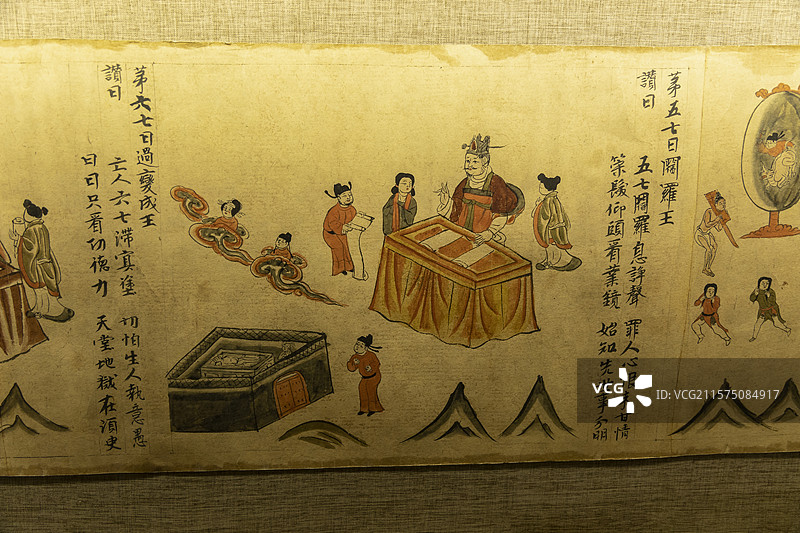 苐五七日閻羅王
讚曰
五七閻羅息諍聲 罪人心 情
策髮仰頭看業鏡 始知先事分明
苐六七日過變成王
讚曰
亡人六七滯冥塗 切怕生人執意愚
日日只看功德力 天堂地獄在湏臾
VCG
VCG211575084917